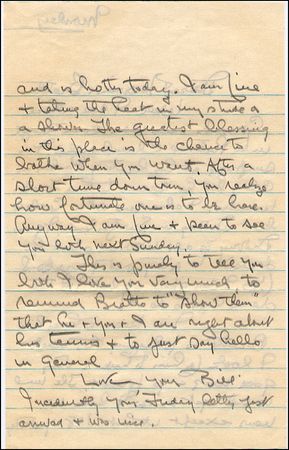 and is hotter today. I am fine
+ taking the heat in my stride
a shower. The greatest blessing
in this place is the chance to
bathe when you want. After a
short time down town, you realize
how fortunate one is to be here.
Anyway I am fine + to see
you both next Sunday.
This is purely to tell you
both I love you very much to
remind to "show them"
that he + you + I are right about
his tennis + to just say hello
in General
Love your Bill
Incidently your Friday letter just
arrived + was nice.